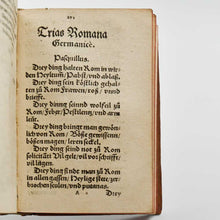 Trias Romana
Germanicè.
Pasquillus.
Drey ding halten Rom in wir
den Heyltum/ Pabst/ vnd ablaß.
Drey ding sein köstlich gehal
ten zů Rom/ Frawen/ roß/ vnnd
brieff.
Drey ding seinnd wolfeil zů
Rom/ Feber/ Pestilentz/ vnd arm
leüt.
Drey ding bringt man gewön
lich von Rom/ Böse gewissenn/
bösen magen/ vnd lären seckel.
Drey ding seind zů Rom not
sollicitirt Vil gelt/ vil vorschrifft/
vil lügen.
Drey ding finde man zů Rom
in allen gassen/ Heylige stett/ zer
brochen seulen/ vnd putanas.
A
Drey